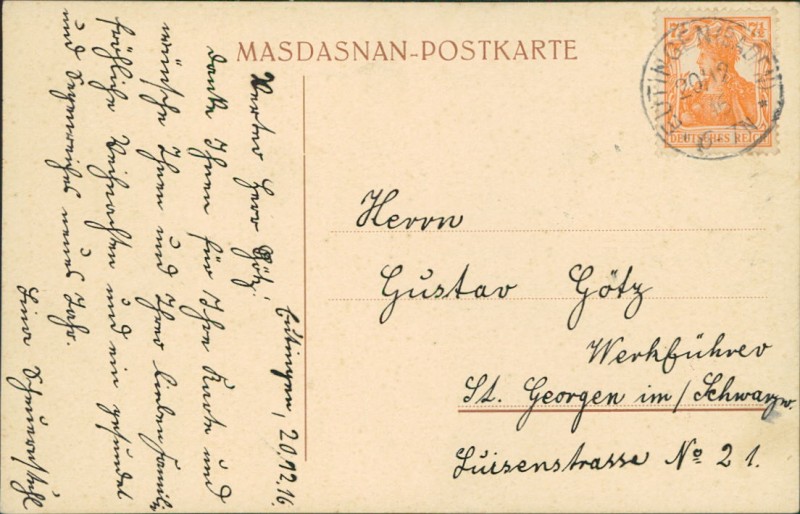 MASDASNAN-POSTKARTE
7½ 7½
DEUTSCHES REICH
EUTINGEN (BADEN)
20/12
Eutingen, 20.12.16.
Werter Herr Götz!
Danke Ihnen für Ihre Karte und
wünsche Ihnen und Ihrer lieben Familie
fröhliche Weihnachten und ein gesundes
und segensreiches neues Jahr.
Herrn
Gustav Götz
Werkführer
St. Georgen im / Schwarzw.
Luisenstrasse No 21.